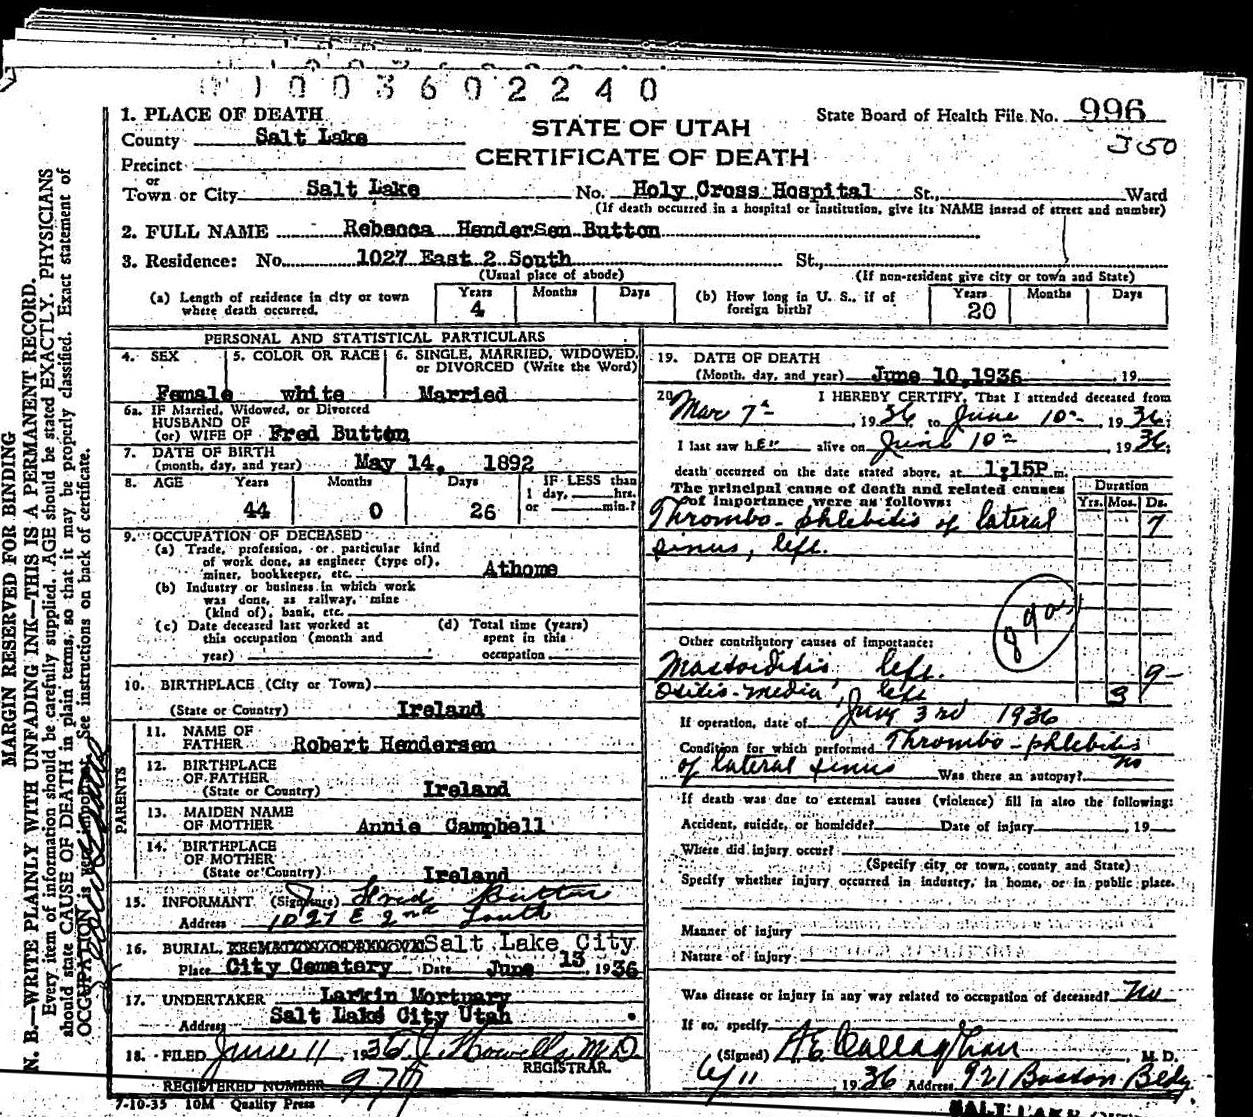 01003602240
1. PLACE OF DEATH
County Salt Lake
Precinct
or
Town or City Salt Lake No. Holy Cross Hospital St., Ward
STATE OF UTAH
CERTIFICATE OF DEATH
State Board of Health File No. 996
350
(If death occurred in a hospital or institution, give its NAME instead of street and number)
2. FULL NAME Rebecca Hendersen Button
3. Residence: No. 1027 East 2 South St.,
(Usual place of abode) (If non-resident give city or town and State)
(a) Length of residence in city or town where death occurred. Years 4 Months Days
(b) How long in U. S., if of foreign birth? Years 20 Months Days
PERSONAL AND STATISTICAL PARTICULARS
4. SEX Female
5. COLOR OR RACE white
6. SINGLE, MARRIED, WIDOWED, or DIVORCED (Write the Word) Married
6a. IF Married, Widowed, or Divorced
HUSBAND OF
(or) WIFE OF Fred Button
7. DATE OF BIRTH
(month, day, and year) May 14, 1892
8. AGE Years 44 Months 0 Days 26 IF LESS than 1 day, hrs. or min.?
9. OCCUPATION OF DECEASED
(a) Trade, profession, or particular kind
of work done, as engineer (type of),
miner, bookkeeper, etc. Athome
(b) Industry or business in which work
was done, as railway, mine
(kind of), bank, etc.
(c) Date deceased last worked at
this occupation (month and
year)
(d) Total time (years)
spent in this
occupation
10. BIRTHPLACE (City or Town)
(State or Country) Ireland
PARENTS
11. NAME OF
FATHER Robert Hendersen
12. BIRTHPLACE
OF FATHER
(State or Country) Ireland
13. MAIDEN NAME
OF MOTHER Annie Campbell
14. BIRTHPLACE
OF MOTHER
(State or Country) Ireland
15. INFORMANT (Signature) Fred Button
Address 1027 E 2nd South
16. BURIAL, Salt Lake City
Place City Cemetery Date June 13, 1936
17. UNDERTAKER Larkin Mortuary
Address Salt Lake City Utah
18. FILED June 11, 1936 M.D.
REGISTRAR.
REGISTERED NUMBER
7-10-35 10M Quality Press
19. DATE OF DEATH
(Month, day, and year) June 10, 1936, 19
20. I HEREBY CERTIFY, That I attended deceased from
Mar 7th, 1936, to June 10th, 1936;
I last saw her alive on June 10th, 1936;
death occurred on the date stated above, at 1;15P m.
The principal cause of death and related causes
of importance were as follows:
Duration
Yrs. Mos. Ds.
Thrombo-phlebitis of lateral 7
sinus, left.
Other contributory causes of importance:
Mastoiditis, left. 9
Otitis-media, left 3
If operation, date of June 3rd 1936
Condition for which performed Thrombo-phlebitis
of lateral sinus Was there an autopsy? no
If death was due to external causes (violence) fill in also the following:
Accident, suicide, or homicide? Date of injury, 19
Where did injury occur?
(Specify city or town, county and State)
Specify whether injury occurred in industry, in home, or in public place.
Manner of injury
Nature of injury
Was disease or injury in any way related to occupation of deceased? No
If so, specify
(Signed) H E Callaghan, M. D.
6/11 1936 Address 921 Boston Bldg
SALT LAKE
MARGIN RESERVED FOR BINDING
N. B.—WRITE PLAINLY WITH UNFADING INK—THIS IS A PERMANENT RECORD.
Every item of information should be carefully supplied. AGE should be stated EXACTLY. PHYSICIANS
should state CAUSE OF DEATH in plain terms, so that it may be properly classified. Exact statement of
OCCUPATION is very important. See instructions on back of certificate.